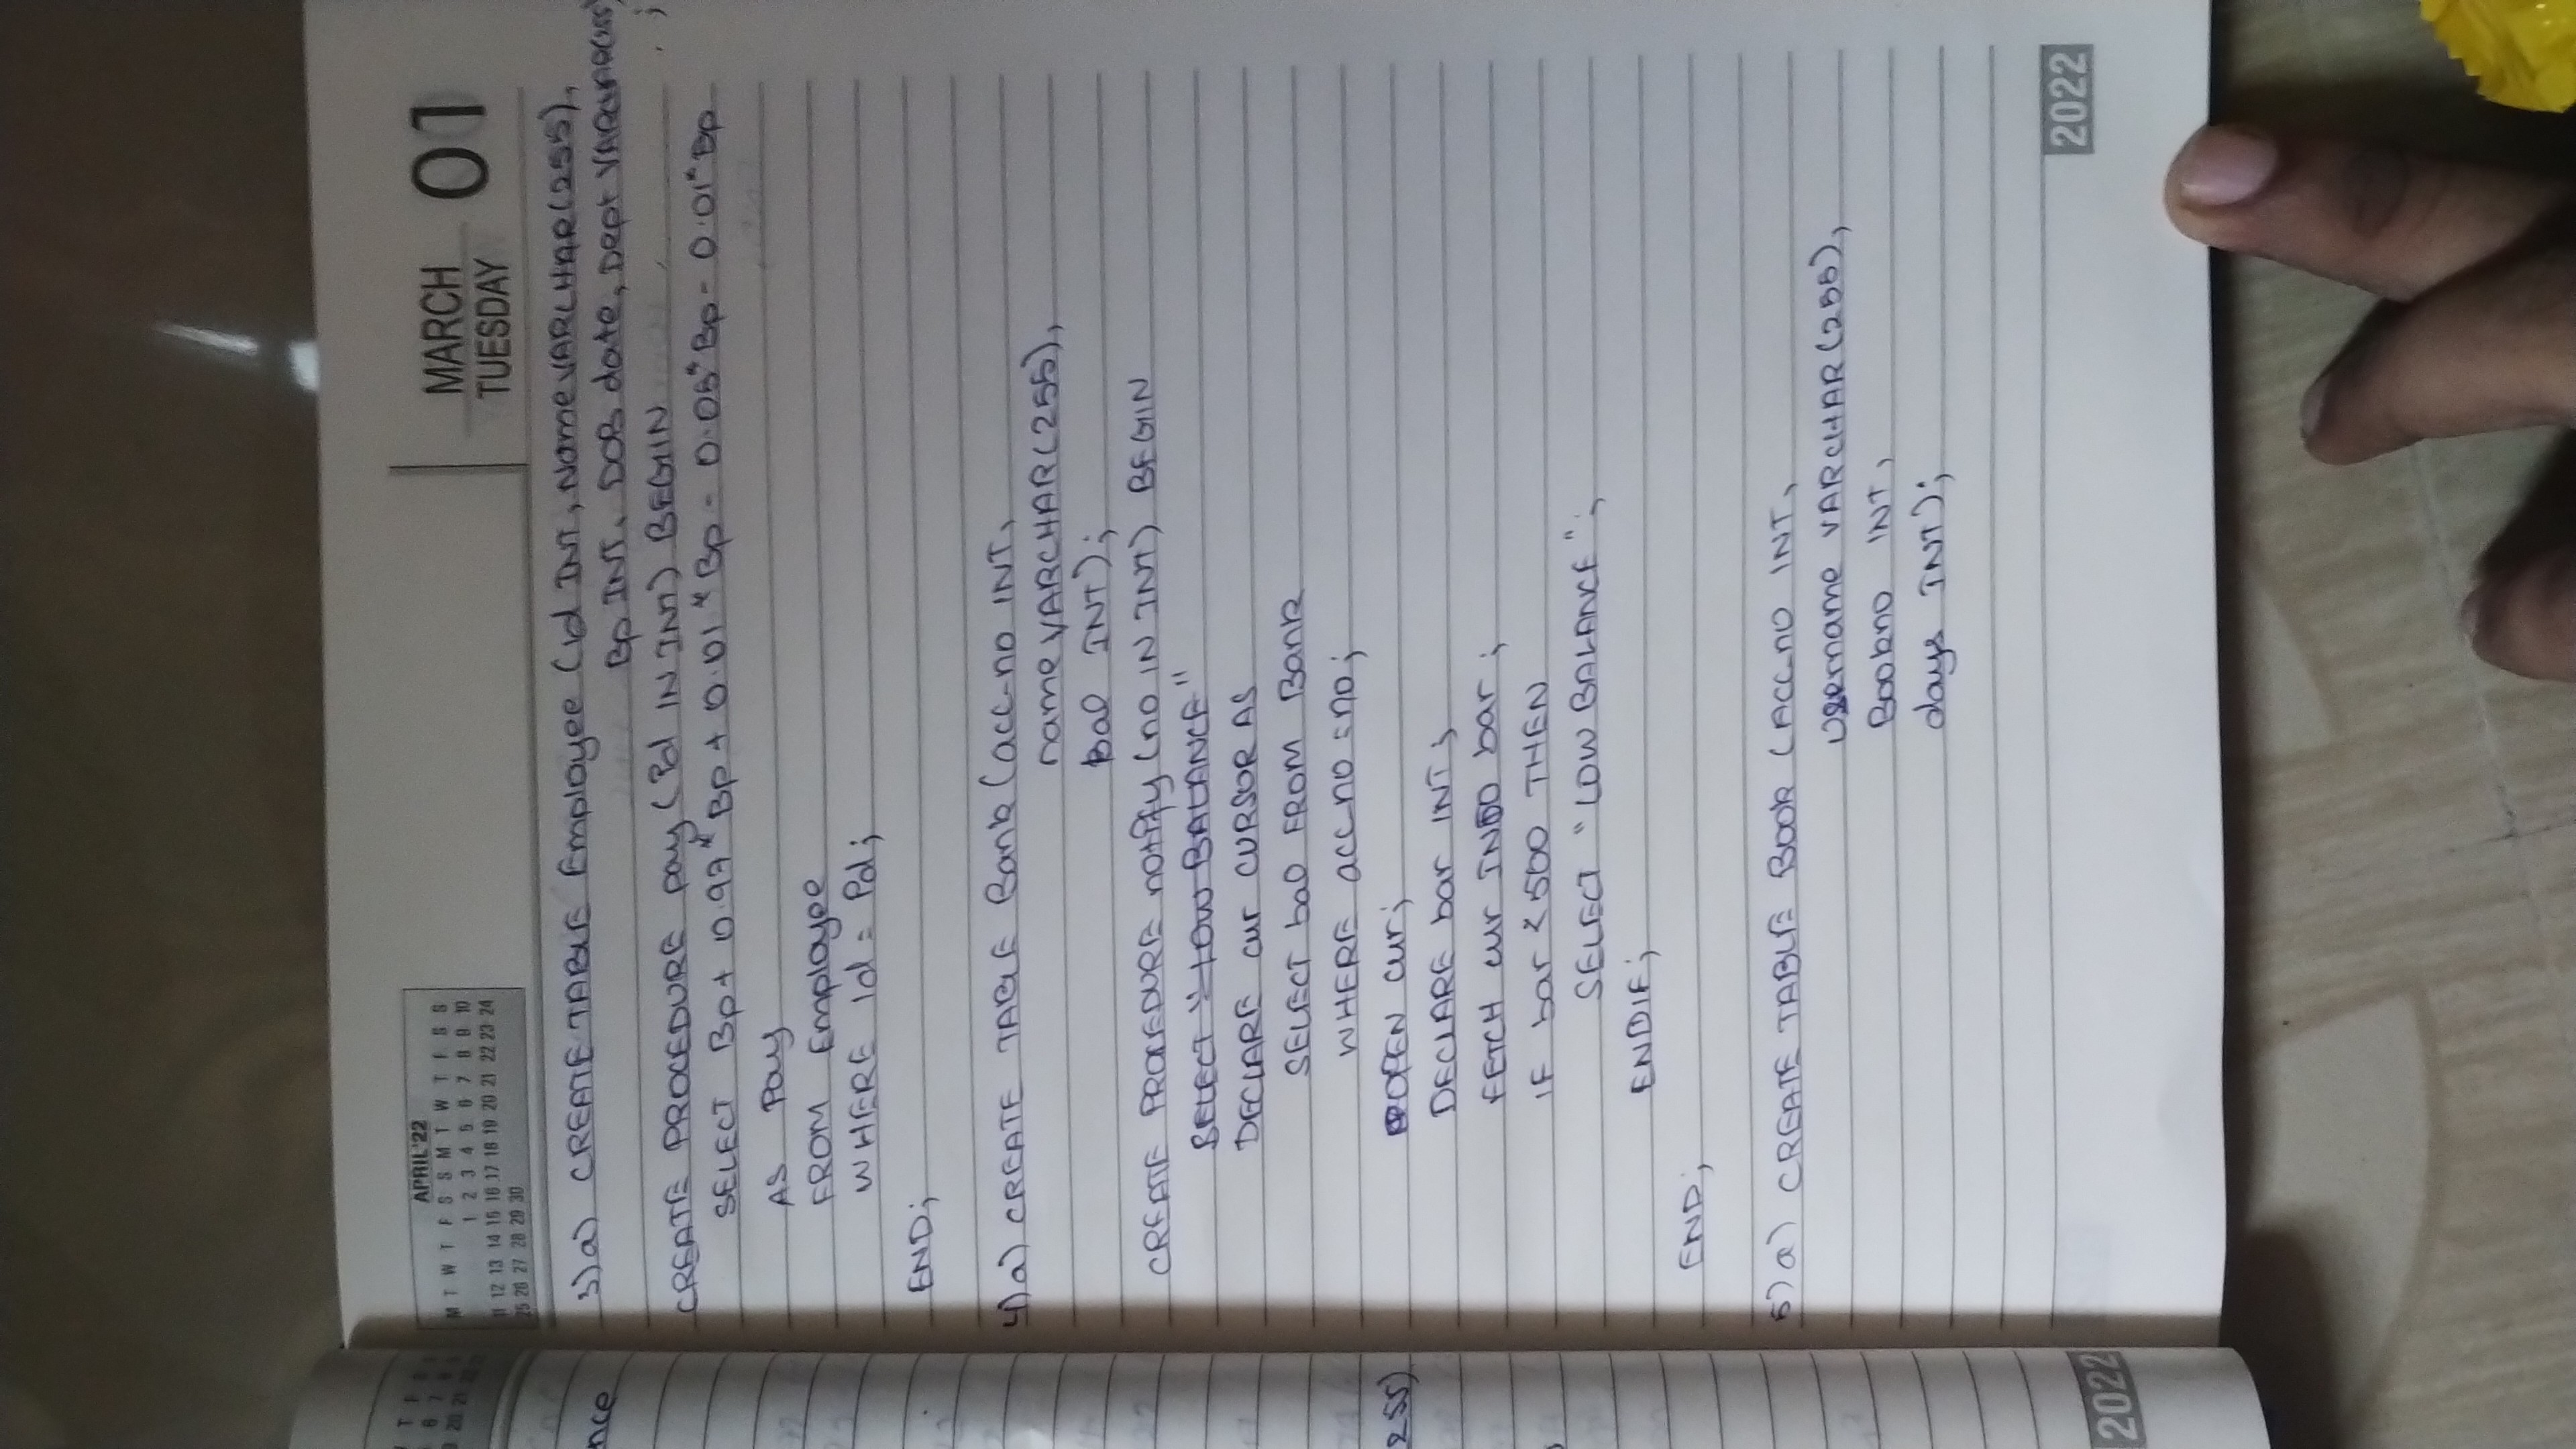 T F S S
6 7
20 21
nce
255)
2022
APRIL'22
M T W T F S S M T W T F S S
1 2 3 4 5 6 7 8 9 10
11 12 13 14 15 16 17 18 19 20 21 22 23 24
25 26 27 28 29 30
MARCH 01
TUESDAY
3)a) CREATE TABLE Employee (id INT, Name VARCHAR(255),
Bp INT, DOB date, Dept VARCHAR(255)
;
CREATE PROCEDURE pay (Pd IN INT) BEGIN
SELECT Bp + 0.97* Bp + 0.01 * Bp - 0.05* Bp - 0.01* Bp
AS Pay
FROM Employee
WHERE Id = Pd;
END;
4)a) CREATE TABLE Bank (acc-no INT,
name VARCHAR(255),
bal INT);
CREATE PROCEDURE notify (no IN INT) BEGIN
SELECT "LOW BALANCE"
DECLARE cur CURSOR AS
SELECT bal FROM Bank
WHERE accno = no;
OPEN cur;
DECLARE bar INT;
FETCH cur INTO bar;
IF bar < 500 THEN
SELECT "LOW BALANCE";
ENDIF;
END;
5)a) CREATE TABLE Book (ACC-no INT,
Username VARCHAR(255),
Bookno INT,
days INT);
2022